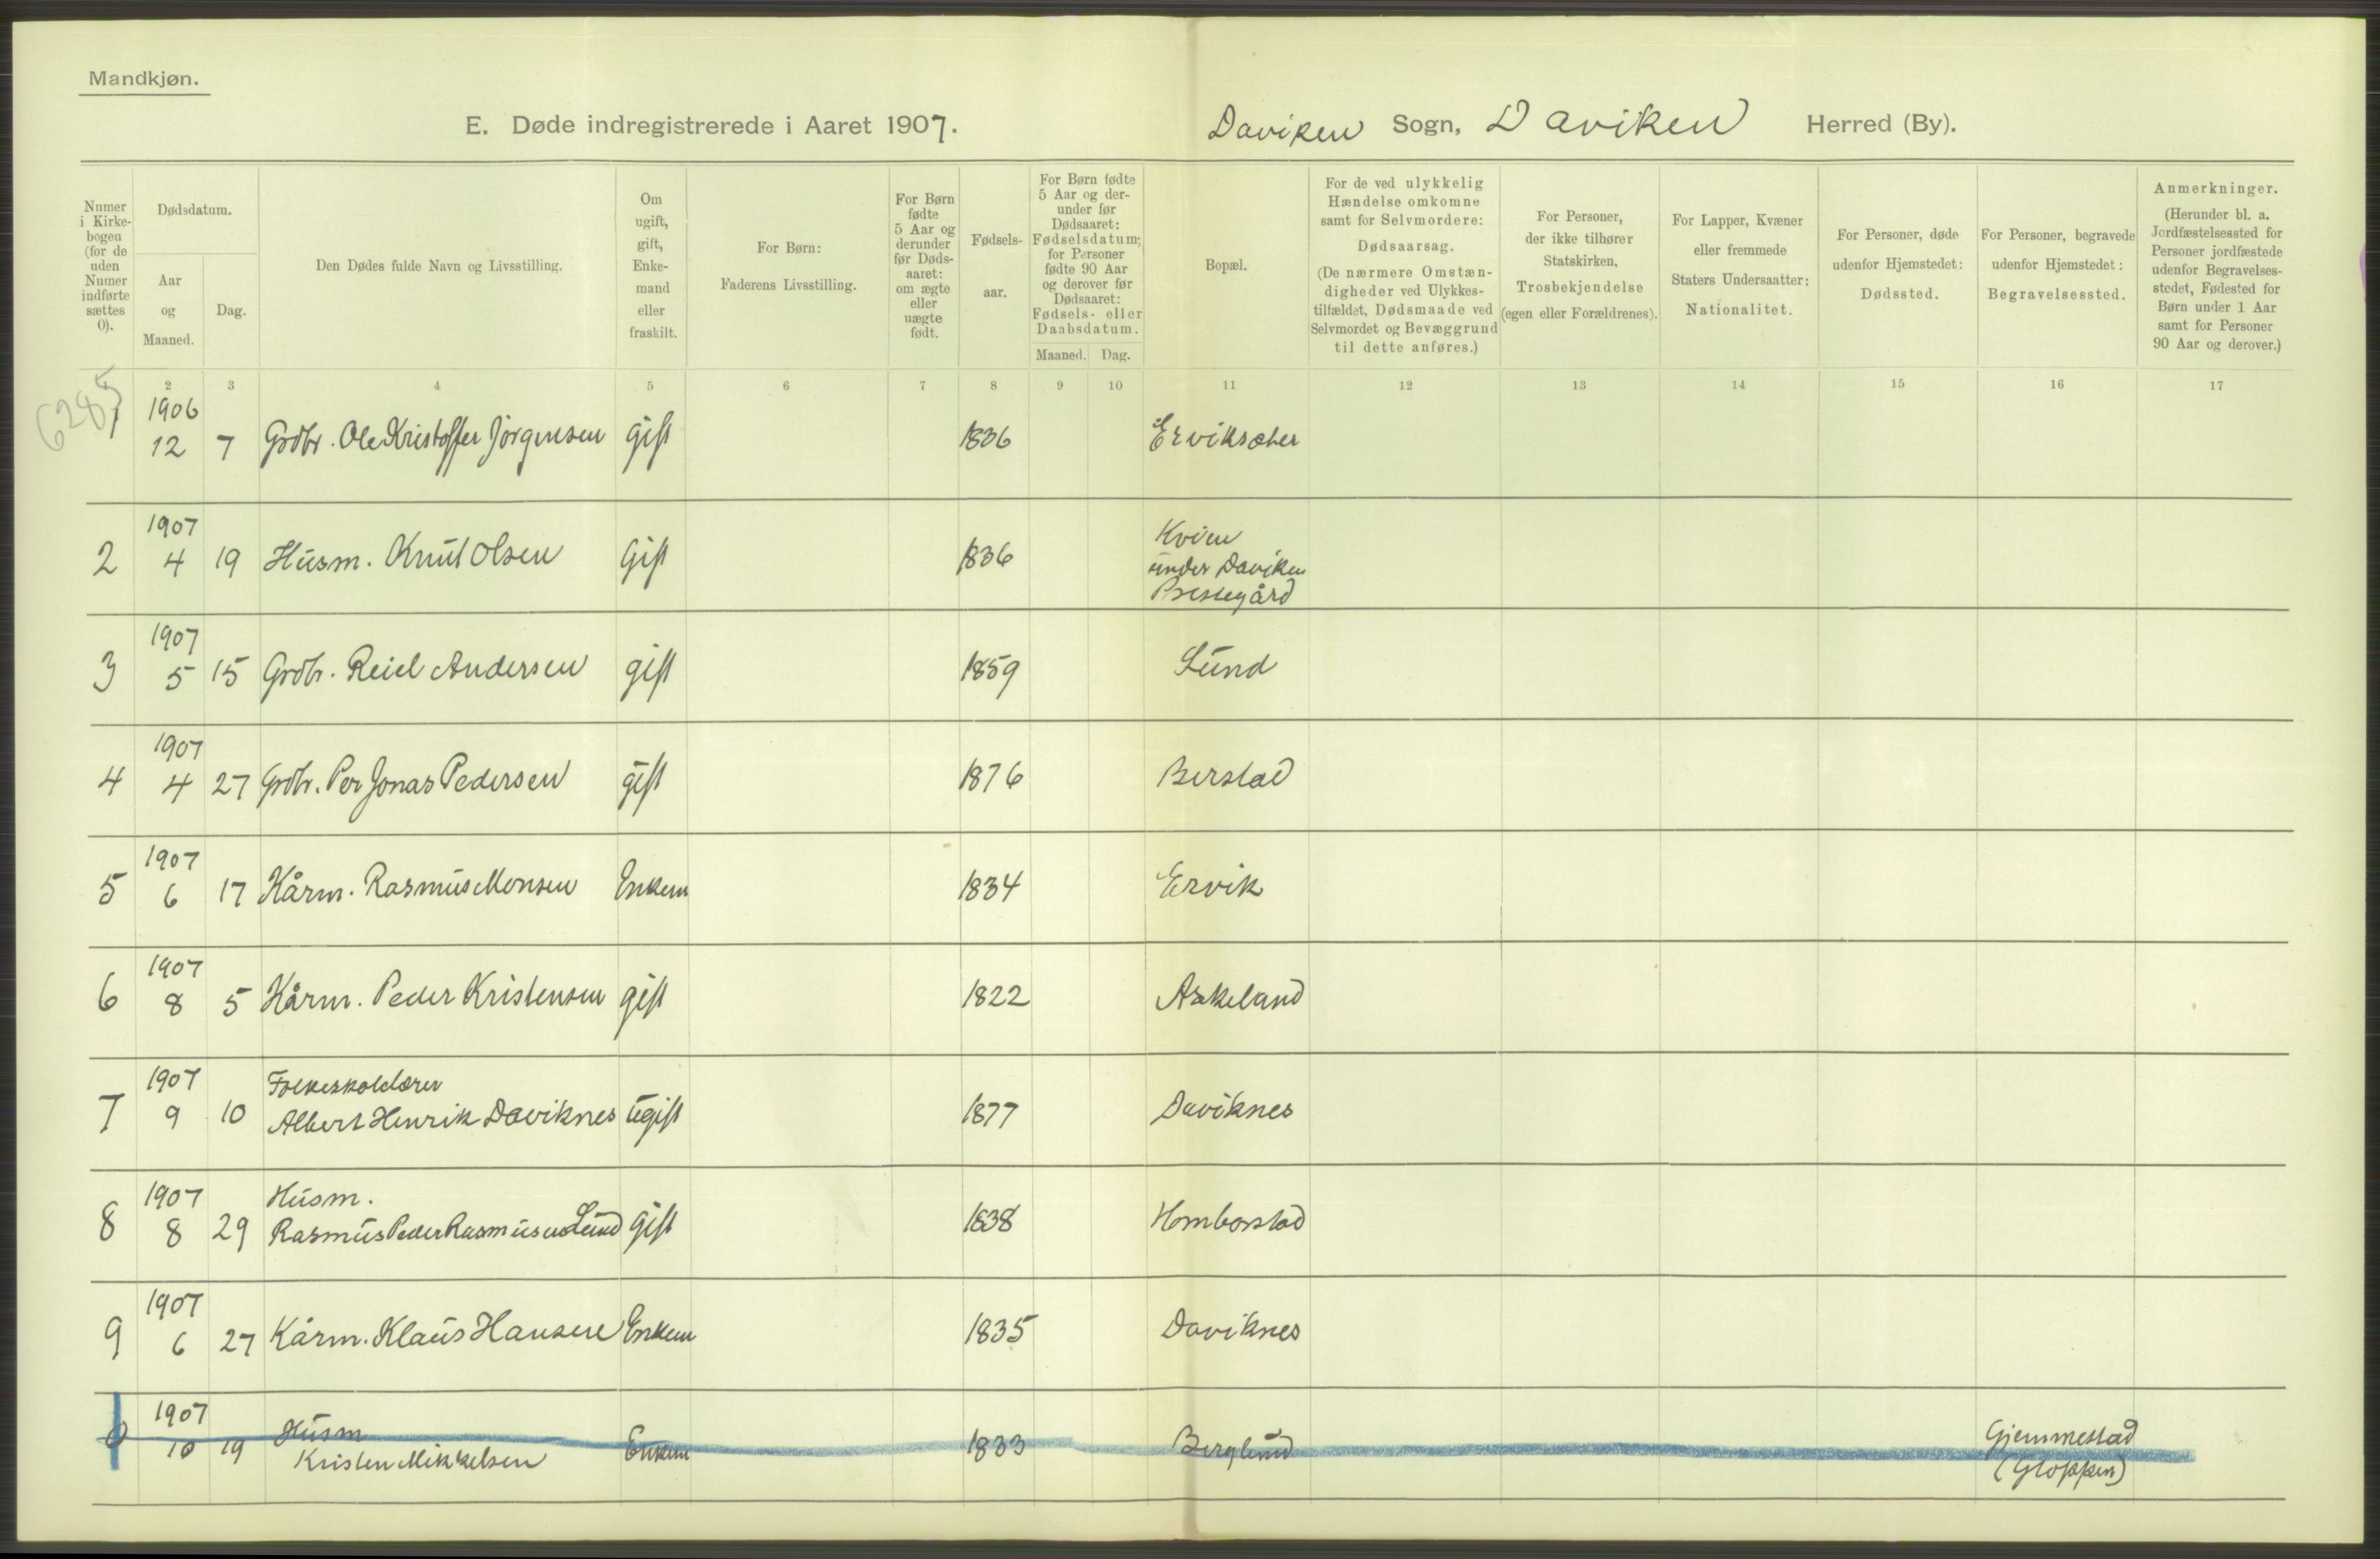 Mandkjøn.
E. Døde indregistrerede i Aaret 1907. Daviken Sogn, Daviken Herred (By).
Numer i Kirke-bogen (for de uden Numer indførte sættes 0).
Dødsdatum.
Aar og Maaned.
Dag.
Den Dødes fulde Navn og Livsstilling.
Om ugift, gift, Enke-mand eller fraskilt.
For Børn: Faderens Livsstilling.
For Børn fødte 5 Aar og derunder før Døds-aaret: om ægte eller uægte født.
Fødsels-aar.
For Børn fødte 5 Aar og der-under før Dødsaaret: Fødselsdatum; for Personer fødte 90 Aar og derover før Dødsaaret: Fødsels- eller Daabsdatum.
Maaned. Dag.
Bopæl.
For de ved ulykkelig Hændelse omkomne samt for Selvmordere: Dødsaarsag. (De nærmere Omstæn-digheder ved Ulykkes-tilfældet, Dødsmaade ved Selvmordet og Bevæggrund til dette anføres.)
For Personer, der ikke tilhører Statskirken, Trosbekjendelse (egen eller Forældrenes).
For Lapper, Kvæner eller fremmede Staters Undersaatter: Nationalitet.
For Personer, døde udenfor Hjemstedet: Dødssted.
For Personer, begravede udenfor Hjemstedet: Begravelsessted.
Anmerkninger. (Herunder bl. a. Jordfæstelsessted for Personer jordfæstede udenfor Begravelses-stedet, Fødested for Børn under 1 Aar samt for Personer 90 Aar og derover.)
2 3 4 5 6 7 8 9 10 11 12 13 14 15 16 17
6285
1 1906 12 7 Grdbr. Ole Kristoffer Jørgensen gift 1836 Erviksæter
2 1907 4 19 Husm. Knut Olsen Gift 1836 Kvien
under Daviken
Prestegård
3 1907 5 15 Grdbr. Reiel Andersen gift 1859 Lund
4 1907 4 27 Grdbr. Per Jonas Pedersen gift 1876 Berstad
5 1907 6 17 Kårm. Rasmus Monsen Enkem 1834 Ervik
6 1907 8 5 Kårm. Peder Kristensen gift 1822 Askeland
7 1907 9 10 Folkeskolelærer
Albert Henrik Daviknes ugift 1877 Daviknes
8 1907 8 29 Husm.
Rasmus Peder Rasmusen Lund gift 1838 Hombostad
9 1907 6 27 Kårm. Klaus Hansen Enkem 1835 Daviknes
0 1907 10 19 Husm
Kristen Mikkelsen Enkem 1833 Berglund Gjemmestad
(Gloppen)